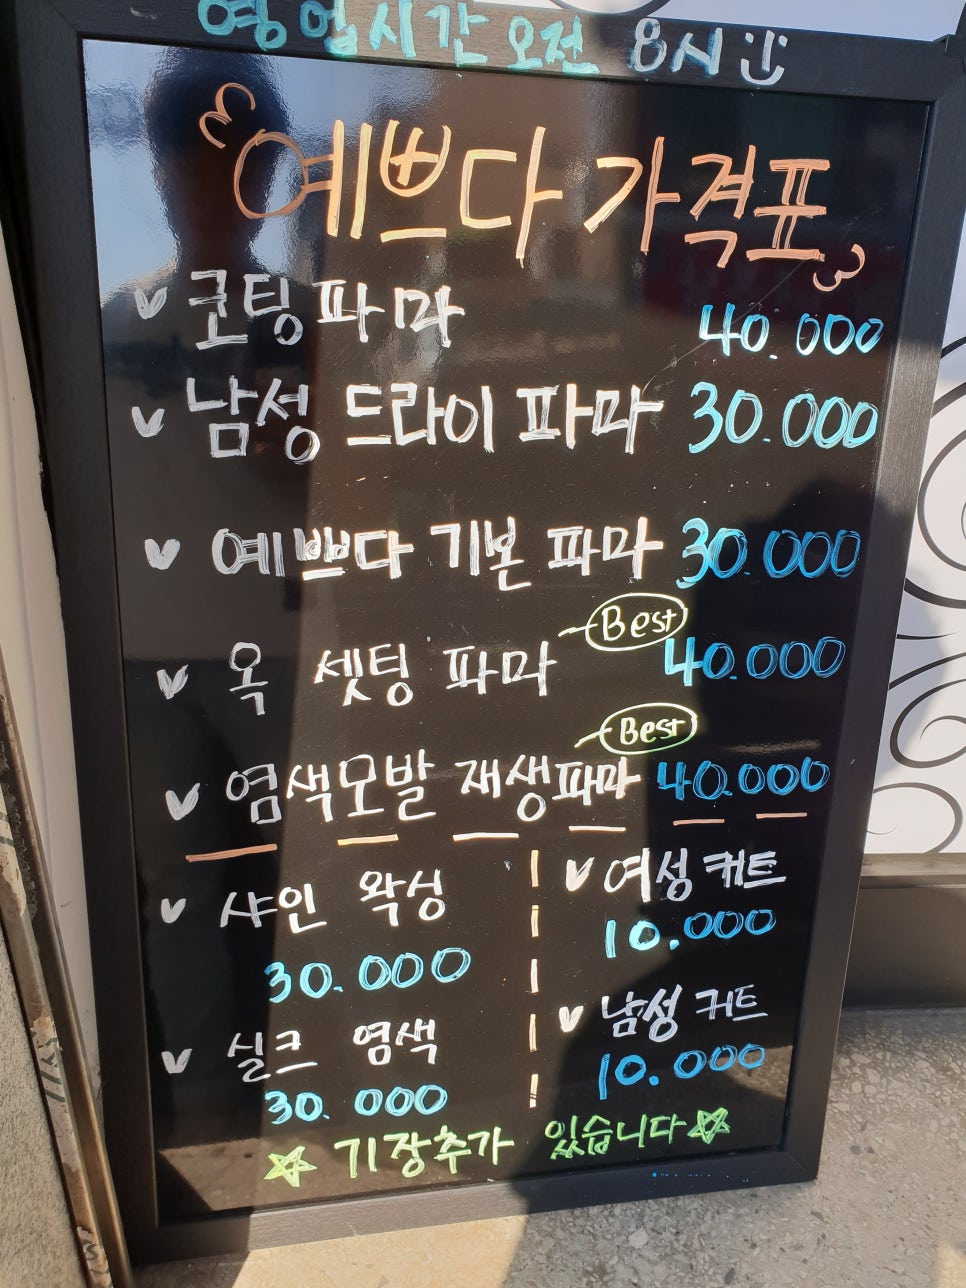 영업시간 오전 8시
예쁘다 가격표
코팅파마 40.000
남성 드라이 파마 30.000
예쁘다 기본 파마 30.000
Best
옥 셋팅 파마 40.000
Best
염색모발 재생파마 40.000
샤인 왁싱
30.000
여성 커트
10.000
실크 염색
30.000
남성 커트
10.000
기장추가 있습니다